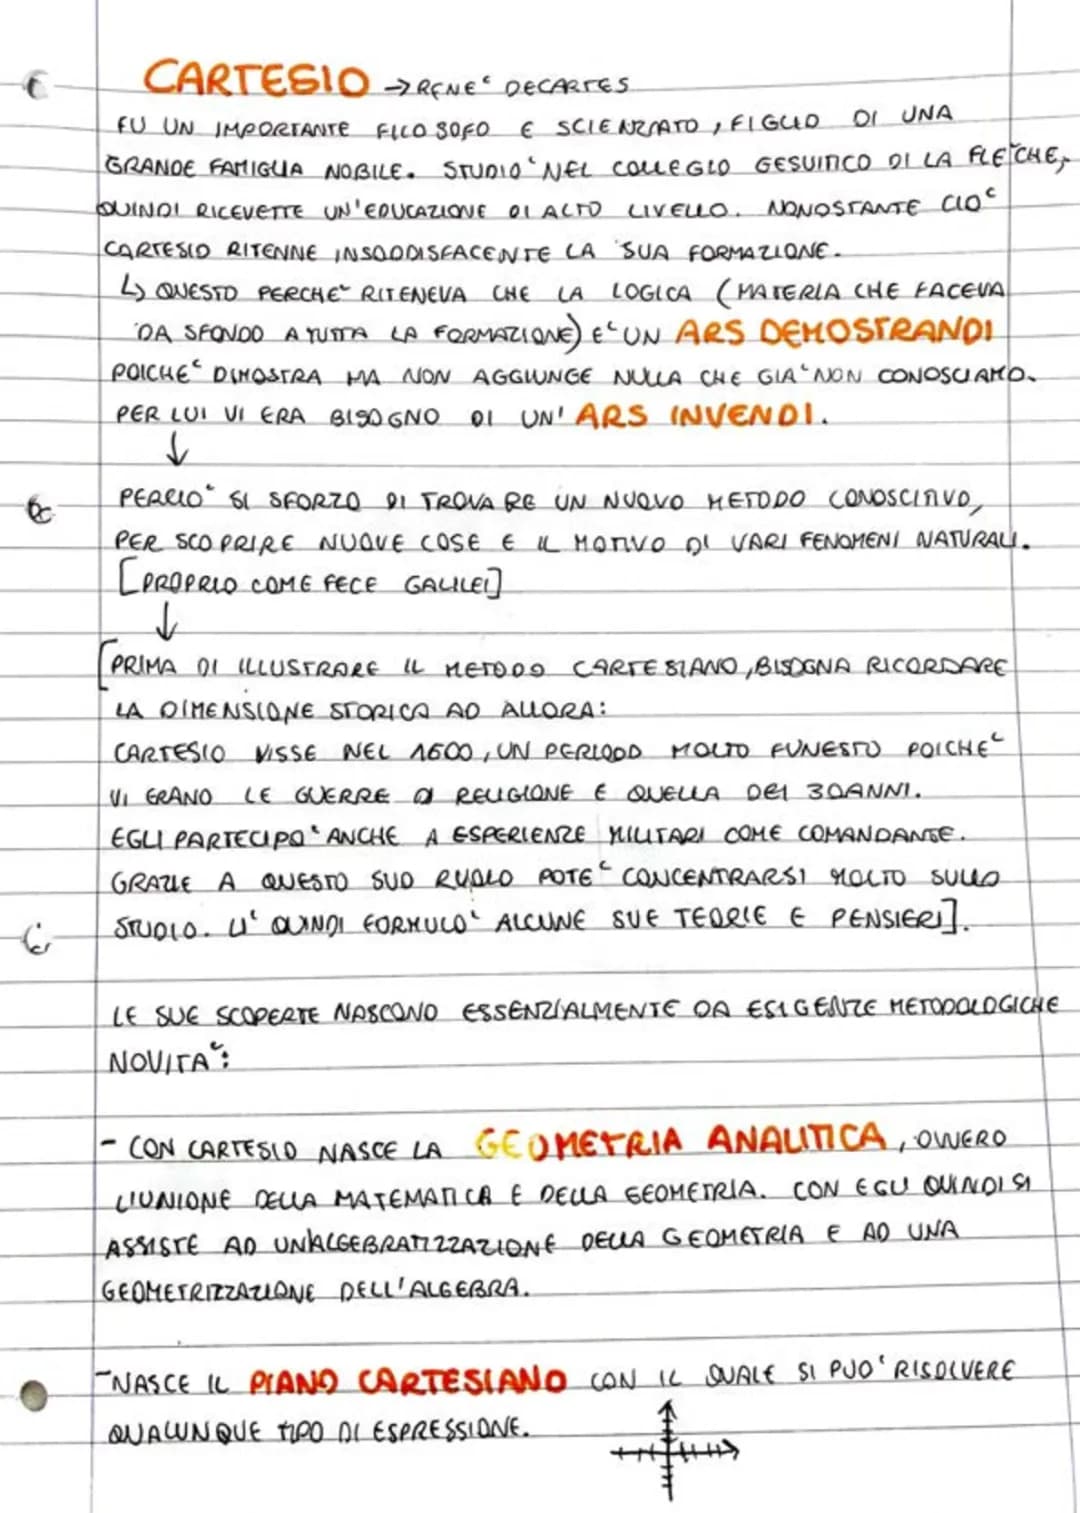 CARTESIO → RENE' DECARTES
FU UN IMPORTANTE FILOSOFO E SCIENZIATO, FIGLIO DI UNA
GRANDE FAMIGLIA NOBILE. STUDIO' NEL COLLEGIO GESUITICO DI LA FLECHE,
QUINDI RICEVETTE UN'EDUCAZIONE DI ALTO LIVELLO. NONOSTANTE CIO'
CARTESIO RITENNE INSODDISFACENTE LA SUA FORMAZIONE.
↳ QUESTO PERCHE' RITENEVA CHE LA LOGICA (MATERIA CHE FACEVA
DA SFONDO A TUTTA LA FORMAZIONE) E' UN ARS DEMOSTRANDI
POICHE' DIMOSTRA MA NON AGGIUNGE NULLA CHE GIA' NON CONOSCIAMO.
PER LUI VI ERA BISOGNO DI UN' ARS INVENDI.
↓
PERCIO' SI SFORZO DI TROVARE UN NUOVO METODO CONOSCITIVO,
PER SCOPRIRE NUOVE COSE E IL MOTIVO DI VARI FENOMENI NATURALI.
[PROPRIO COME FECE GALILEI]
↓
[PRIMA DI ILLUSTRARE IL METODO CARTESIANO, BISOGNA RICORDARE
LA DIMENSIONE STORICA AD ALLORA:
CARTESIO VISSE NEL 1600, UN PERIODO MOLTO FUNESTO POICHE'
VI ERANO LE GUERRE DI RELIGIONE E QUELLA DEI 30ANNI.
EGLI PARTECIPO' ANCHE A ESPERIENZE MILITARI COME COMANDANTE.
GRAZIE A QUESTO SUO RUOLO POTE' CONCENTRARSI MOLTO SULLO
STUDIO. LI' QUINDI FORMULO' ALCUNE SUE TEORIE E PENSIERI].
LE SUE SCOPERTE NASCONO ESSENZIALMENTE DA ESIGENZE METODOLOGICHE
NOVITA':
- CON CARTESIO NASCE LA GEOMETRIA ANALITICA, OVVERO
L'UNIONE DELLA MATEMATICA E DELLA GEOMETRIA. CON EGLI QUINDI SI
ASSISTE AD UN'ALGEBRATIZZAZIONE DELLA GEOMETRIA E AD UNA
GEOMETRIZZAZIONE DELL'ALGEBRA.
- NASCE IL PIANO CARTESIANO CON IL QUALE SI PUO' RISOLVERE
QUALUNQUE TIPO DI ESPRESSIONE.